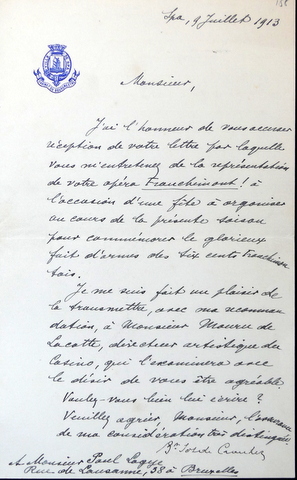 Spa, 9 Juillet 1913
Monsieur,
J'ai l'honneur de vous accuser
réception de votre lettre par laquelle
vous m'entretenez de la représentation
de votre opéra Franchimont! à
l'occasion d'une fête à organiser
au cours de la présente saison
pour commémorer le glorieux
fait d'armes des six cents franchimon
tois.
Je me suis fait un plaisir de
la transmettre, avec ma recomman
dation, à Monsieur Mouru de
Lacotte, directeur artistique du
Casino, qui l'examinera avec
le désir de vous être agréable
Voulez-vous bien lui écrire?
Veuillez agréer, Monsieur, l'assurance
de ma considération très distinguée.
Bon
A Monsieur Paul Lagye
Rue de Lausanne, 38 à Bruxelles